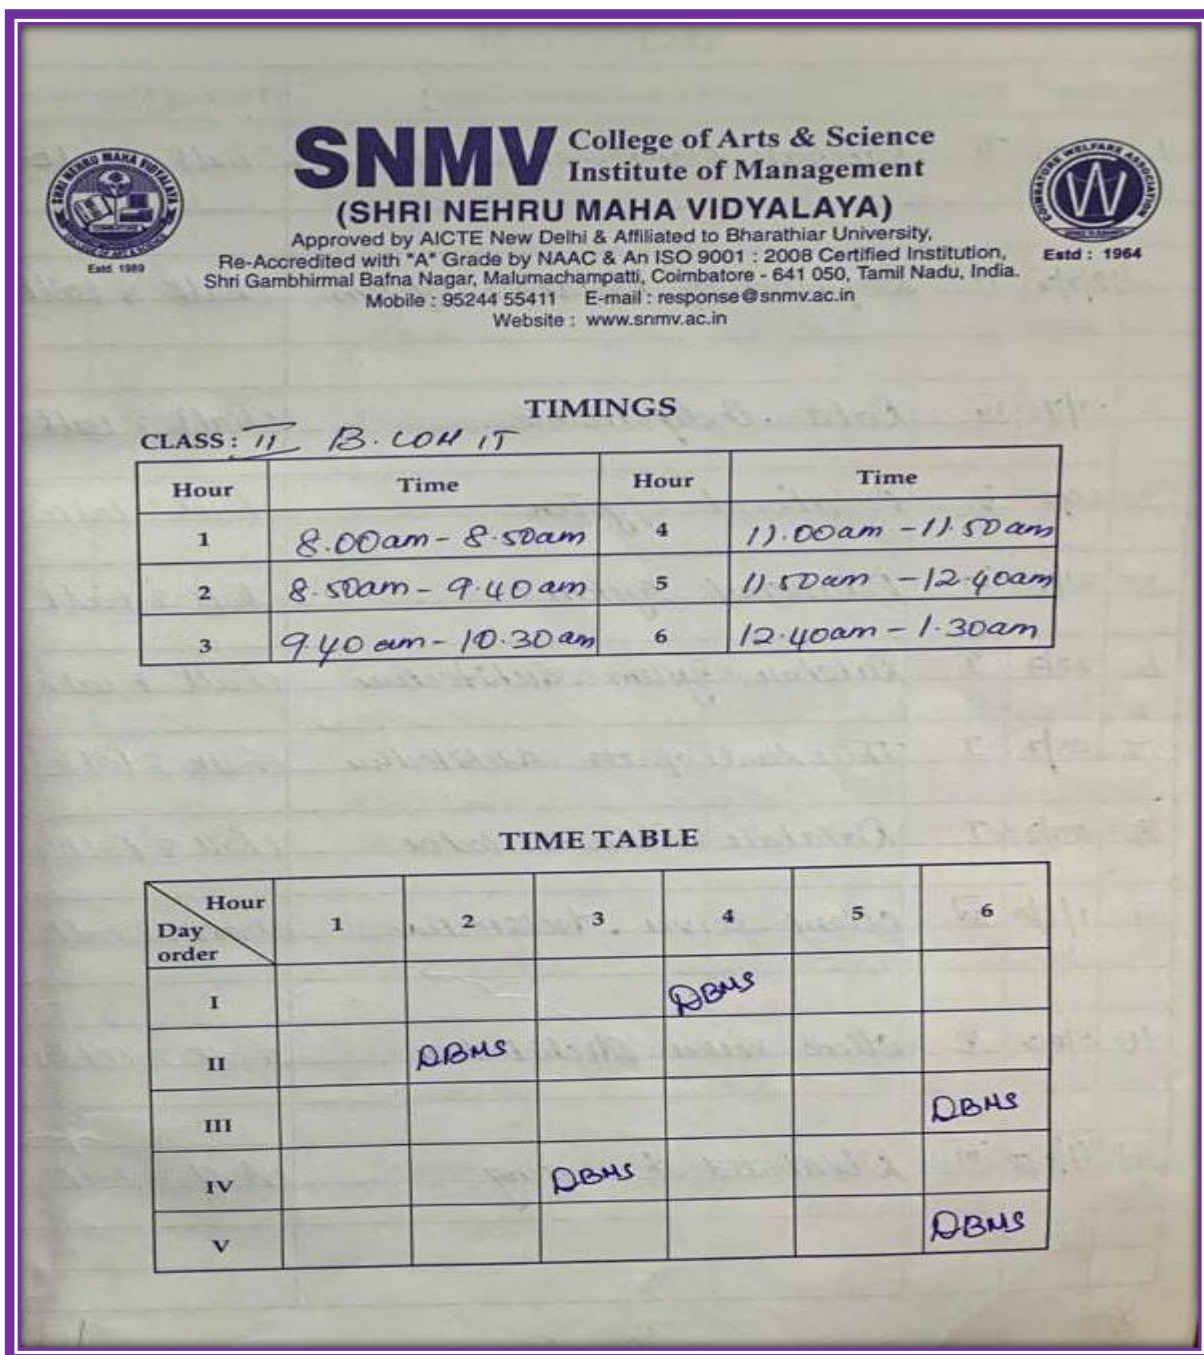 SNMV College of Arts & Science
Institute of Management
(SHRI NEHRU MAHA VIDYALAYA)
Approved by AICTE New Delhi & Affiliated to Bharathiar University,
Re-Accredited with "A" Grade by NAAC & An ISO 9001 : 2008 Certified Institution,
Shri Gambhirmal Bafna Nagar, Malumachampatti, Coimbatore - 641 050, Tamil Nadu, India.
Mobile : 95244 55411 E-mail : response@snmv.ac.in
Website : www.snmv.ac.in
SHRI NEHRU MAHA VIDYALAYA
COLLEGE OF ART & SCIENCE
Estd. 1989
COIMBATORE WELFARE ASSOCIATION
W
Estd : 1964
TIMINGS
CLASS : II B.COM IT
Hour Time Hour Time
1 8.00am - 8.50am 4 11.00am - 11.50am
2 8.50am - 9.40am 5 11.50am - 12.40am
3 9.40am - 10.30am 6 12.40am - 1.30am
TIME TABLE
Hour
Day
order
1 2 3 4 5 6
I DBMS
II DBMS
III DBMS
IV DBMS
V DBMS